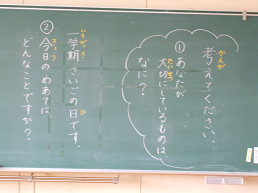 考えてください。
かんが
①あなたが
大切にしているものは、
たいせつ
なに？
一学期さいごの日です。
いちがっき
ひ
②今日のめあては、
きょう
どんなことですか？